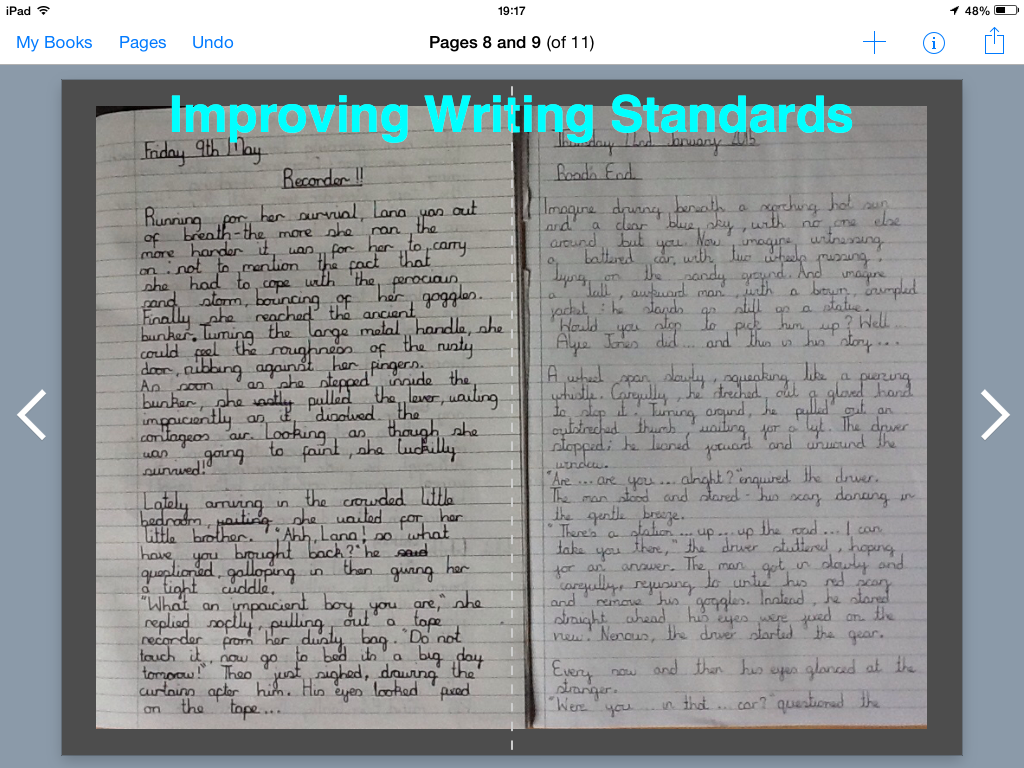 iPad
19:17
48%
My Books
Pages
Undo
Pages 8 and 9 (of 11)
Improving Writing Standards
Friday 9th May
Recorder!!
Running for her survival, Lana was out
of breath-the more she ran the
more harder it was for her to carry
on: not to mention the fact that
she had to cope with the ferocious
sand storm, bouncing of her goggles.
Finally she reached the ancient
bunker. Turning the large metal handle, she
could feel the roughness of the rusty
door, rubbing against her fingers.
As soon as she stepped inside the
bunker, she pulled the lever, waiting
impaciently as it disolved the
contageos air. Looking as though she
was going to faint, she luckilly
survived!
Lately arriving in the crowded little
bedroom, waiting she waited for her
little brother. "Ahh, Lana; so what
have you brought back?" he said
questioned, galloping in then giving her
a tight cuddle.
"What an impaicient boy you are," she
replied softly, pulling out a tape
recorder from her dusty bag. "Do not
touch it, now go to bed its a big day
tomorow!" Theo just sighed, drawing the
curtains after him. His eyes looked fixed
on the tape...
Thursday 22nd January 2015
Road's End
Imagine driving beneath a scorching hot sun
and a clear blue sky, with no one else
around but you. Now imagine witnessing
a battered car, with two wheels missing,
lying on the sandy ground. And imagine
a tall, awkward man, with a brown, crumpled
jacket: he stands as still as a statue.
Would you stop to pick him up? Well
Jones did... and this is his story....
A wheel span slowly, squeaking like a piercing
whistle. Carfully, he streched out a gloved hand
to stop it. Turning around, he pulled out an
outstreched thumb, waiting for a lift. The driver
stopped; he leaned forward and unwound the
window.
"Are ... are you ... alright?" enquired the driver.
The man stood and stared - his scarf dancing in
the gentle breeze.
"There's a station ... up ... up the road ... I can
take you there," the driver stuttered, hoping
for an answer. The man got in slowly and
carefully, refusing to untie his red scarf
and remove his goggles. Instead, he stared
straight ahead his eyes were fixed on the
view. Nervous, the driver started the gear.
Every now and then his eyes glanced at the
stranger.
"Were you ... in that ... car?" questioned the